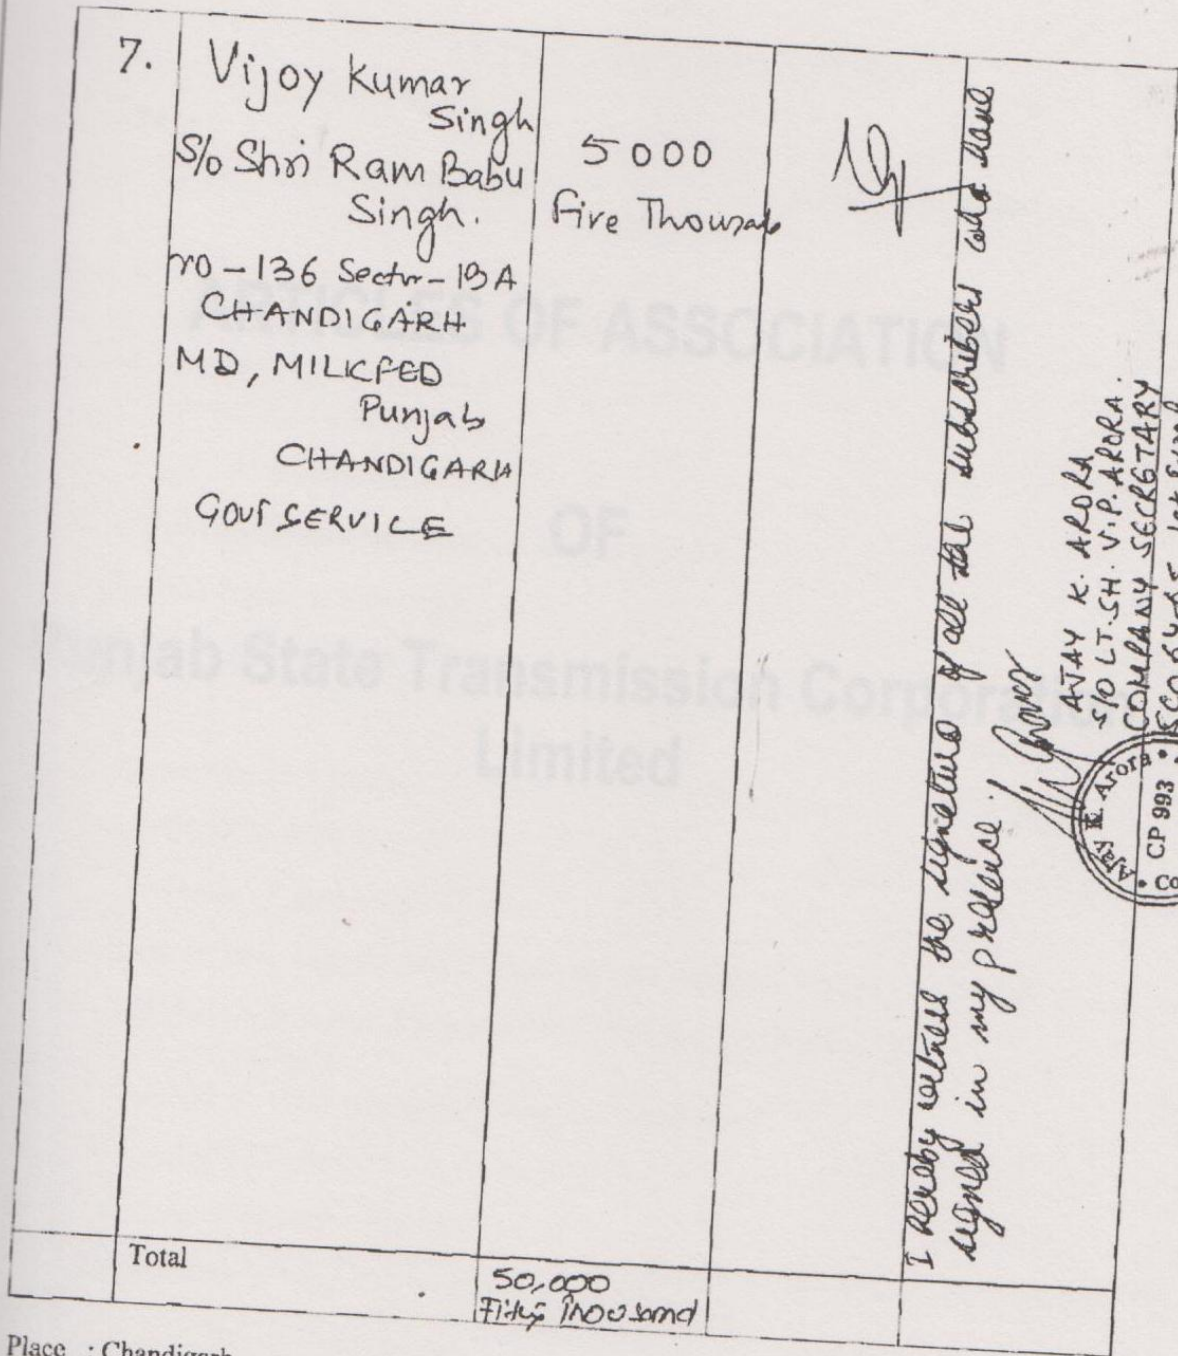 7.
Vijoy Kumar
Singh
S/o Shri Ram Babu
Singh.
ro-136 Sector-19A
CHANDIGARH
MD, MILKFED
Punjab
CHANDIGARH
GOVT SERVICE
5000
Five Thousand
I hereby witness the signature of all the subscribers who have
signed in my presence.
AJAY K. ARORA
S/O LT. SH. V.P. ARORA.
COMPANY SECRETARY
Ajay K. Arora
CP 993
Total
50,000
Fifty Thousand
Place : Chandigarh
ARTICLES OF ASSOCIATION
OF
Punjab State Transmission Corporation
Limited